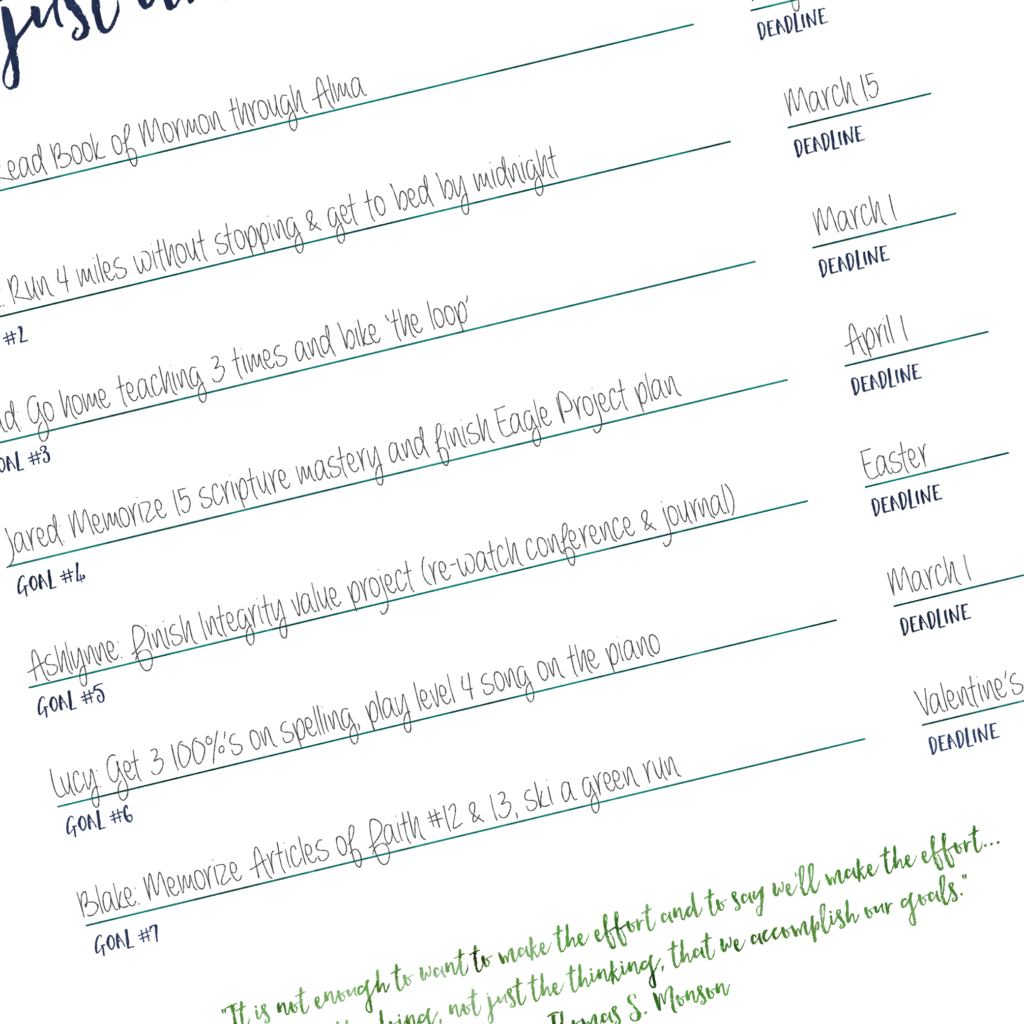 just
Read Book of Mormon through Alma
DEADLINE
Run 4 miles without stopping & get to bed by midnight March 15
#2 DEADLINE
Go home teaching 3 times and bike 'the loop' March 1
#3 DEADLINE
Jared: Memorize 15 scripture mastery and finish Eagle Project plan April 1
GOAL #4 DEADLINE
Ashlynne: Finish Integrity value project (re-watch conference & journal) Easter
GOAL #5 DEADLINE
Lucy: Get 3 100%'s on spelling, play level 4 song on the piano March 1
GOAL #6 DEADLINE
Blake: Memorize Articles of Faith #12 & 13, ski a green run Valentine's
GOAL #7 DEADLINE
"It is not enough to want to make the effort and to say we'll make the effort...
doing, not just the thinking, that we accomplish our goals."
Thomas S. Monson